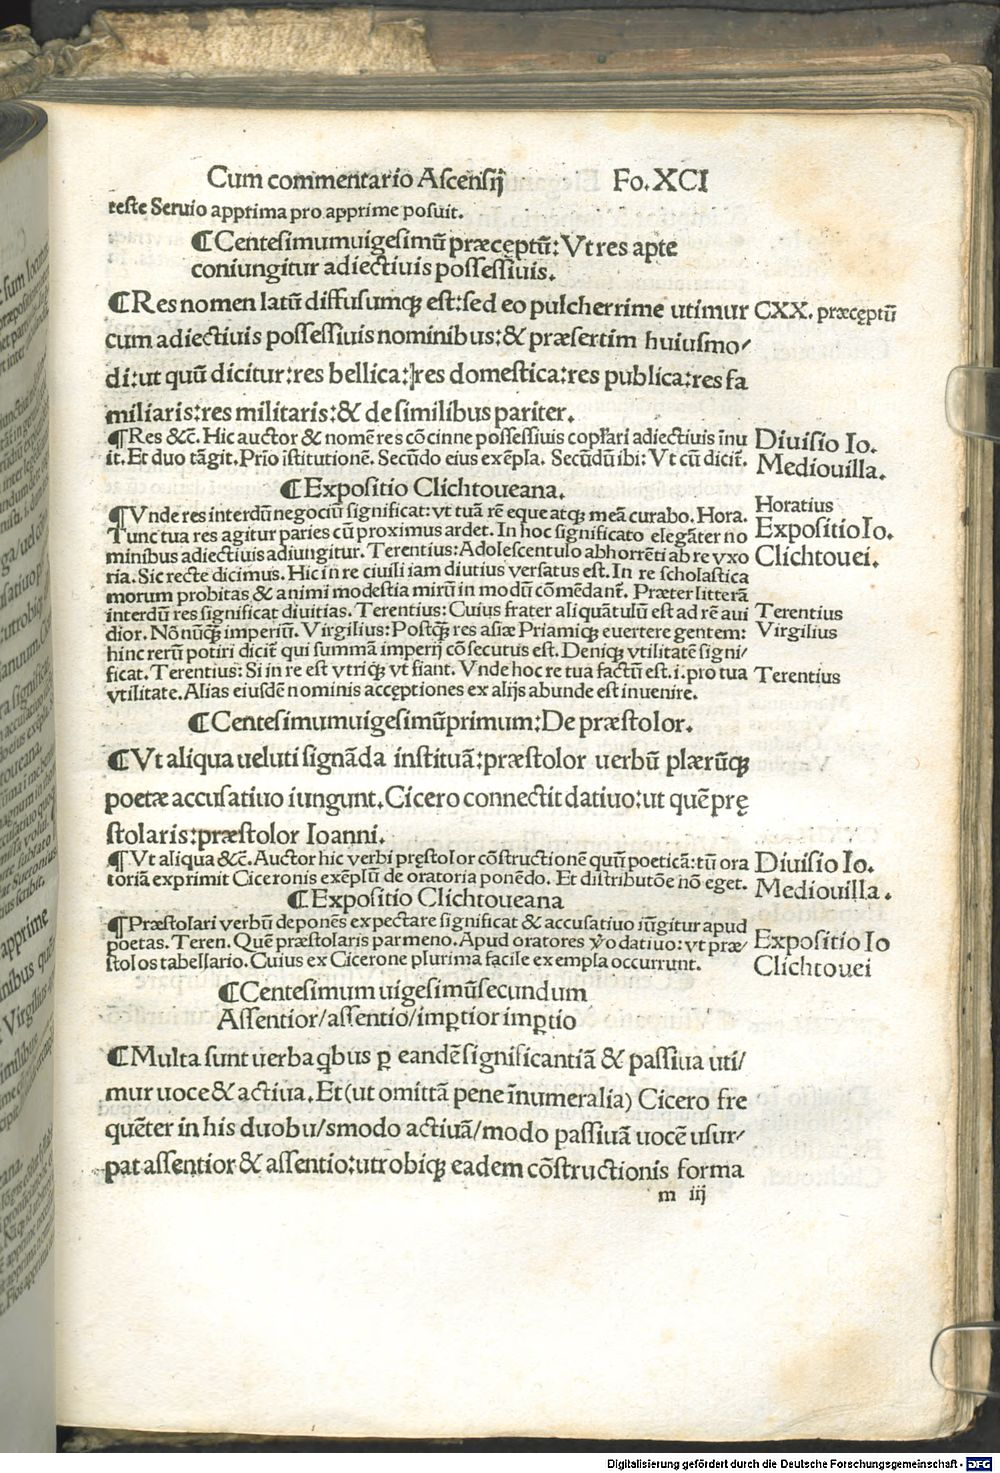 Cum commentario Ascensij Fo. XCI
teste Seruio apprima pro apprime posuit.
¶Centesimumuigesimũ præcęptũ: Vt res apte
coniungitur adiectiuis possessiuis.
¶Res nomen latũ diffusumqꝫ est: sed eo pulcherrime utimur
CXX. præcęptũ
cum adiectiuis possessiuis nominibus: & præsertim huiusmo/
di: ut quũ dicitur: res bellica: res domestica: res publica: res fa
miliaris: res militaris: & de similibus pariter.
¶Res &c̃. Hic auctor & nomẽ res cõcinne possessiuis copĺari adiectiuis ĩnu
it. Et duo tãgit. Prio ĩstitutionẽ. Secũdo eius exẽpla. Secũdũ ibi: Vt cũ dicit̃.
Diuisio Io.
Mediouilla.
¶Expositio Clichtoueana.
¶Vnde res interdũ negociũ significat: vt tuã rẽ eque atqꝫ meã curabo. Hora.
Horatius
Tunc tua res agitur paries cũ proximus ardet. In hoc significato elegãter no
Expositio Io.
minibus adiectiuis adiungitur. Terentius: Adolescentulo abhorrẽti ab re vxo
Clichtouei.
ria. Sic recte dicimus. Hic in re ciuili iam diutius versatus est. In re scholastica
morum probitas & animi modestia mirũ in modũ cõmẽdant̃. Præter litterã
interdũ res significat diuitias. Terentius: Cuius frater aliquãtulũ est ad rẽ aui
Terentius
dior. Nõnũqꝫ imperiũ. Virgilius: Postqꝫ res asiæ Priamiqꝫ euertere gentem:
Virgilius
hinc rerũ potiri dicit̃ qui summã imperij cõsecutus est. Deniqꝫ vtilitatẽ signi/
ficat. Terentius: Si in re est vtriqꝫ vt fiant. Vnde hoc re tua factũ est. i. pro tua
Terentius
vtilitate. Alias eiusdẽ nominis acceptiones ex alijs abunde est inuenire.
¶Centesimumuigesimũprimum: De præstolor.
¶Vt aliqua ueluti signãda instituã: præstolor uerbũ plærũqꝫ
poetæ accusatiuo iungunt. Cicero connectit datiuo: ut quẽ prę
stolaris: præstolor Ioanni.
¶Vt aliqua &c̃. Auctor hic verbi pręstolor cõstructionẽ quũ poeticã: tũ ora
Diuisio Io.
toriã exprimit Ciceronis exẽplũ de oratoria ponẽdo. Et distributõe nõ eget.
Mediouilla.
¶Expositio Clichtoueana
¶Præstolari verbũ deponẽs expectare significat & accusatiuo iũgitur apud
poetas. Teren. Quẽ præstolaris parmeno. Apud oratores ṽo datiuo: vt præ/
Expositio Io
stolos tabellario. Cuius ex Cicerone plurima facile exempla occurrunt.
Clichtouei
¶Centesimum uigesimũsecundum
Assentior/assentio/imꝑtior imꝑtio
¶Multa sunt uerba q̃bus ꝑ eandẽ significantiã & passiua uti/
mur uoce & actiua. Et (ut omittã pene ĩnumeralia) Cicero fre
quẽter in his duobu/smodo actiuã/modo passiuã uocẽ usur/
pat assentior & assentio: utrobiqꝫ eadem cõstructionis forma
m iij
Digitalisierung gefördert durch die Deutsche Forschungsgemeinschaft - DFG